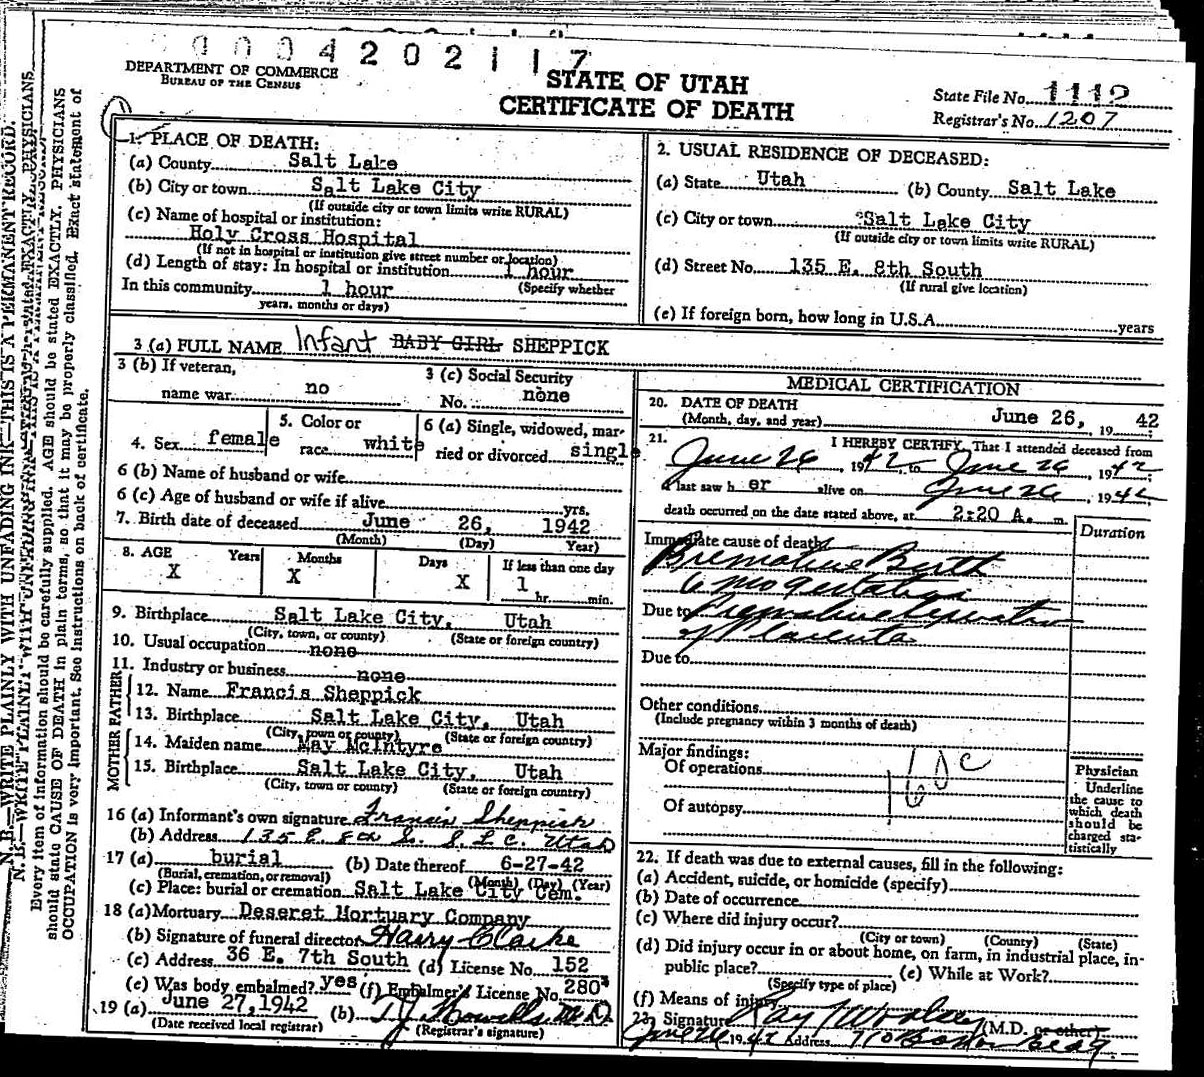 0004202117
DEPARTMENT OF COMMERCE
BUREAU OF THE CENSUS
STATE OF UTAH
CERTIFICATE OF DEATH
State File No. 1112
Registrar's No. 1207
N. B.—WRITE PLAINLY WITH UNFADING INK—THIS IS A PERMANENT RECORD.
Every item of information should be carefully supplied. AGE should be stated EXACTLY. PHYSICIANS
should state CAUSE OF DEATH in plain terms, so that it may be properly classified. Exact statement of
OCCUPATION is very important. See instructions on back of certificate.
1. PLACE OF DEATH:
(a) County Salt Lake
(b) City or town Salt Lake City
(If outside city or town limits write RURAL)
(c) Name of hospital or institution:
Holy Cross Hospital
(If not in hospital or institution give street number or location)
(d) Length of stay: In hospital or institution 1 hour
In this community 1 hour (Specify whether
years, months or days)
2. USUAL RESIDENCE OF DECEASED:
(a) State Utah (b) County Salt Lake
(c) City or town Salt Lake City
(If outside city or town limits write RURAL)
(d) Street No. 135 E. 8th South
(If rural give location)
(e) If foreign born, how long in U.S.A. years
3 (a) FULL NAME Infant BABY GIRL SHEPPICK
3 (b) If veteran,
name war no
3 (c) Social Security
No. none
4. Sex female
5. Color or
race white
6 (a) Single, widowed, mar-
ried or divorced single
6 (b) Name of husband or wife
6 (c) Age of husband or wife if alive yrs.
7. Birth date of deceased June 26, 1942
(Month) (Day) Year)
8. AGE Years Months Days If less than one day
X X X 1 hr. min.
9. Birthplace Salt Lake City, Utah
(City, town, or county) (State or foreign country)
10. Usual occupation none
11. Industry or business none
FATHER
12. Name Francis Sheppick
13. Birthplace Salt Lake City, Utah
(City, town or county) (State or foreign country)
MOTHER
14. Maiden name May McIntyre
15. Birthplace Salt Lake City, Utah
(City, town or county) (State or foreign country)
16 (a) Informant's own signature Francis Sheppick
(b) Address 135 E. 8th So. S. L. C. Utah
17 (a) burial (b) Date thereof 6-27-42
(Burial, cremation, or removal) (Month) (Day) (Year)
(c) Place: burial or cremation Salt Lake City Cem.
18 (a) Mortuary Deseret Mortuary Company
(b) Signature of funeral director Harry Clarke
(c) Address 36 E. 7th South (d) License No. 152
(e) Was body embalmed? yes (f) Embalmer's License No. 280
19 (a) June 27, 1942 (b) T. J. Howells M. D.
(Date received local registrar) (Registrar's signature)
MEDICAL CERTIFICATION
20. DATE OF DEATH
(Month, day, and year) June 26, 19 42
21. I HEREBY CERTIFY, That I attended deceased from
June 26, 1942 to June 26, 1942
I last saw h er alive on June 26, 1942
death occurred on the date stated above, at 2:20 A. m.
Duration
Immediate cause of death
Premature Birth
6 mo gestation
Due to Premature Separation
of Placenta
Due to
Other conditions
(Include pregnancy within 3 months of death)
Major findings:
Of operations
Of autopsy
Physician
Underline
the cause to
which death
should be
charged sta-
tistically
22. If death was due to external causes, fill in the following:
(a) Accident, suicide, or homicide (specify)
(b) Date of occurrence
(c) Where did injury occur?
(City or town) (County) (State)
(d) Did injury occur in or about home, on farm, in industrial place, in-
public place? (e) While at Work?
(Specify type of place)
(f) Means of injury
23. Signature Ray (M.D. or other)
June 26 1942 Address 710 Boston Bldg.